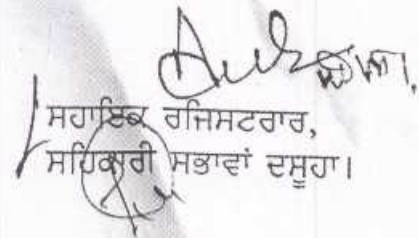 ਸਹਾਇਕ ਰਜਿਸਟਰਾਰ,
ਸਹਿਕਾਰੀ ਸਭਾਵਾਂ ਦਸੂਹਾ।